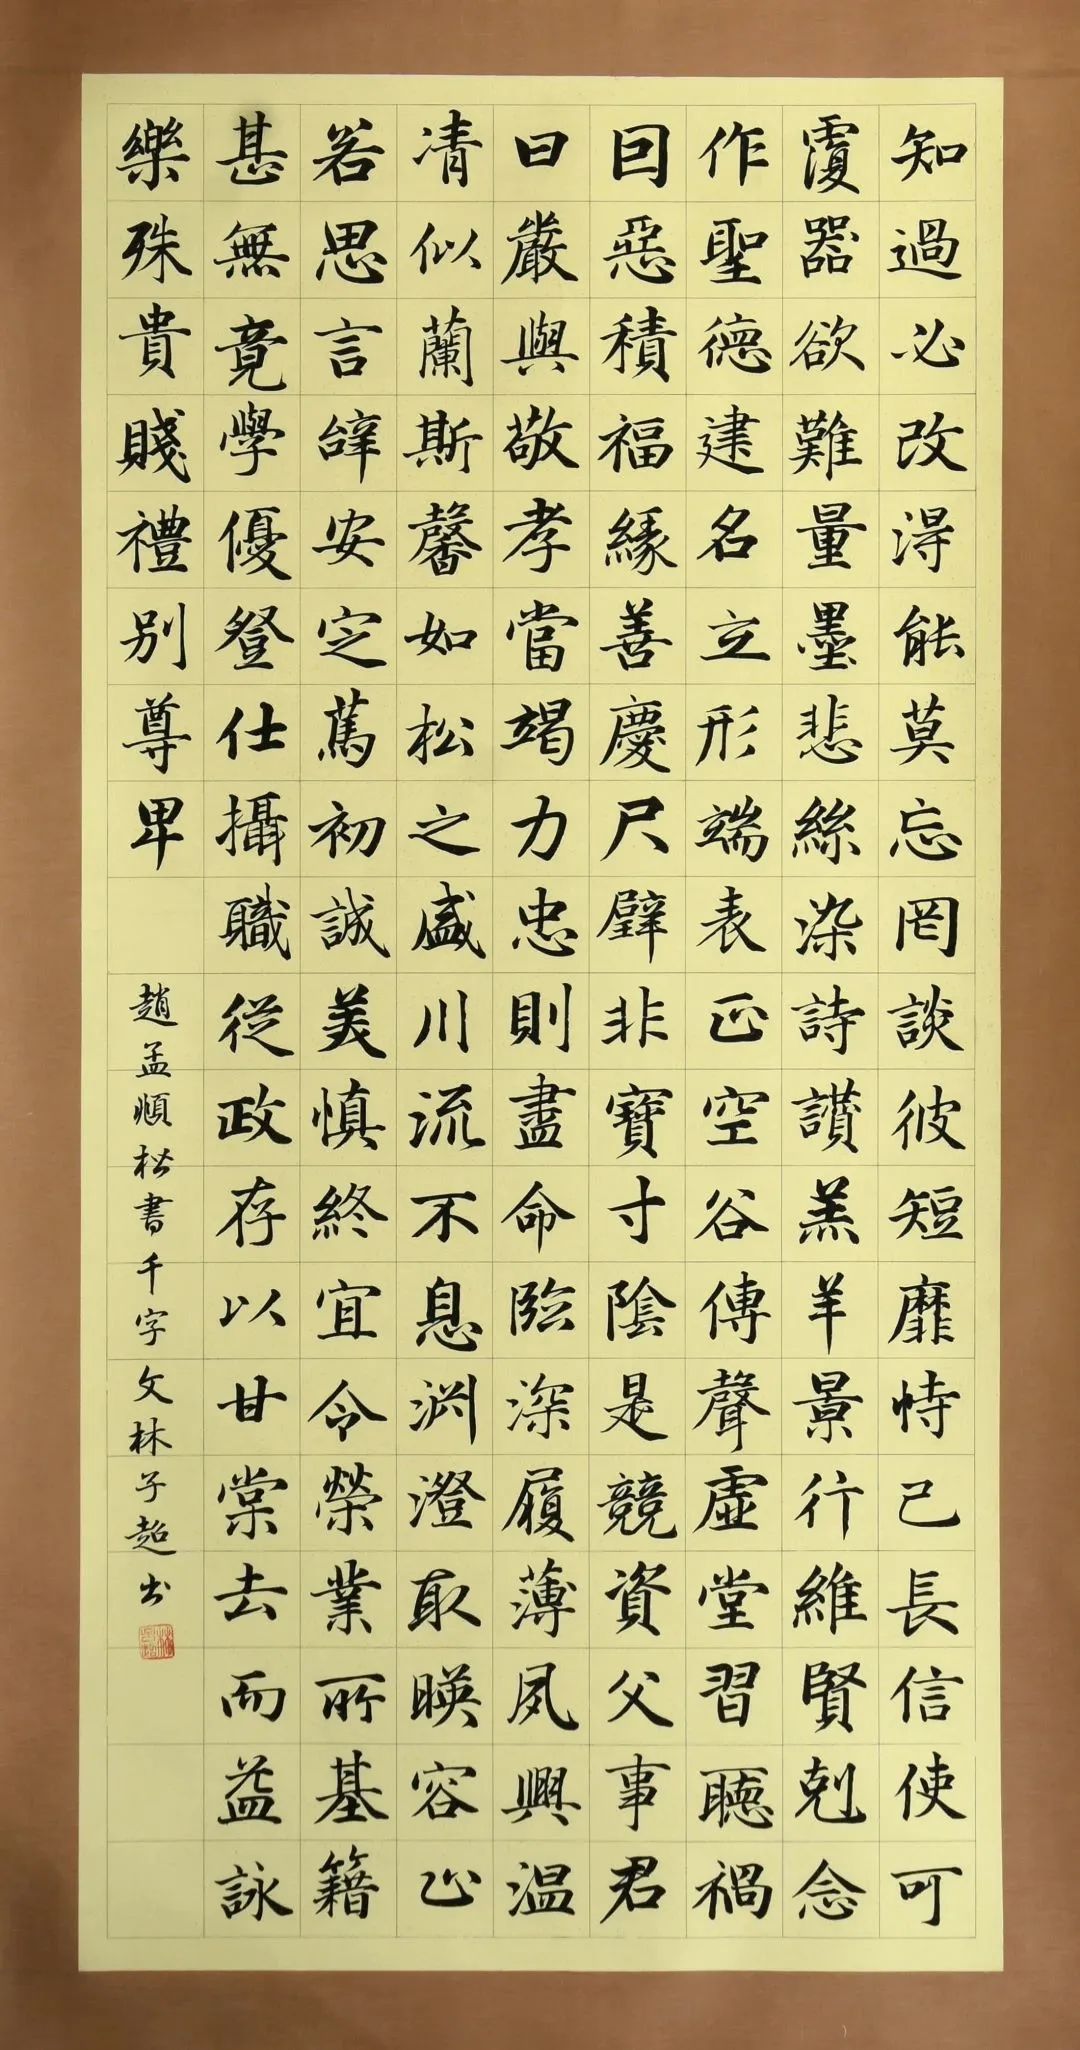 知過必改得能莫忘罔談彼短靡恃己長信使可
覆器欲難量墨悲絲染詩讃羔羊景行維賢剋念
作聖德建名立形端表正空谷傳聲虛堂習聽禍
因惡積福緣善慶尺璧非寶寸陰是競資父事君
曰嚴與敬孝當竭力忠則盡命臨深履薄夙興温
凊似蘭斯馨如松之盛川流不息淵澄取暎容止
若思言辝安定篤初誠美慎終宜令榮業所基籍
甚無竟學優登仕攝職從政存以甘棠去而益詠
樂殊貴賤禮別尊卑
趙孟順楷書千字文林子超书